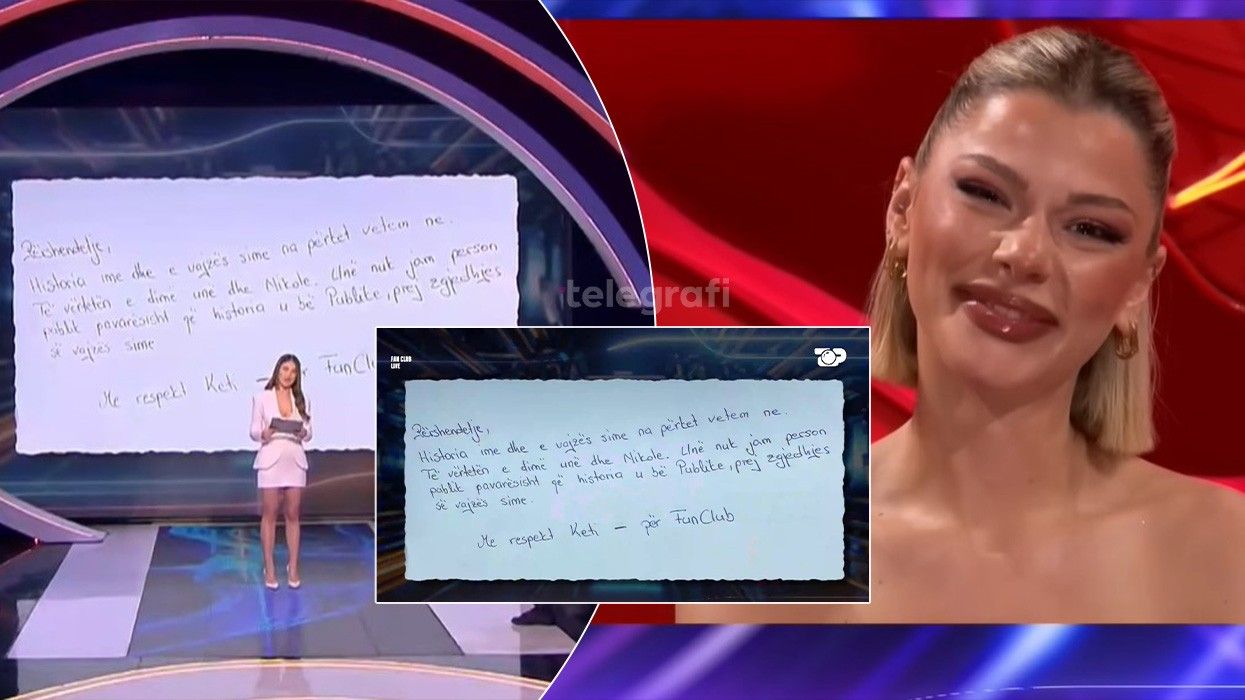 Përshendetje,
Historia ime dhe e vajzës sime na përket vetem ne.
Të vërtetën e dimë unë dhe Nikole. Unë nuk jam person
publik pavarësisht që historia u bë Publike, prej zgjedhjes
së vajzës sime
Me respekt Keti – për FanClu
telegrafi
FAN CLUB
LIVE
Përshendetje,
Historia ime dhe e vajzës sime na përket vetem ne.
Të vërtetën e dimë unë dhe Nikole. Unë nuk jam person
publik pavarësisht që historia u bë Publike, prej zgjedhjes
së vajzës sime.
Me respekt Keti – për FanClub